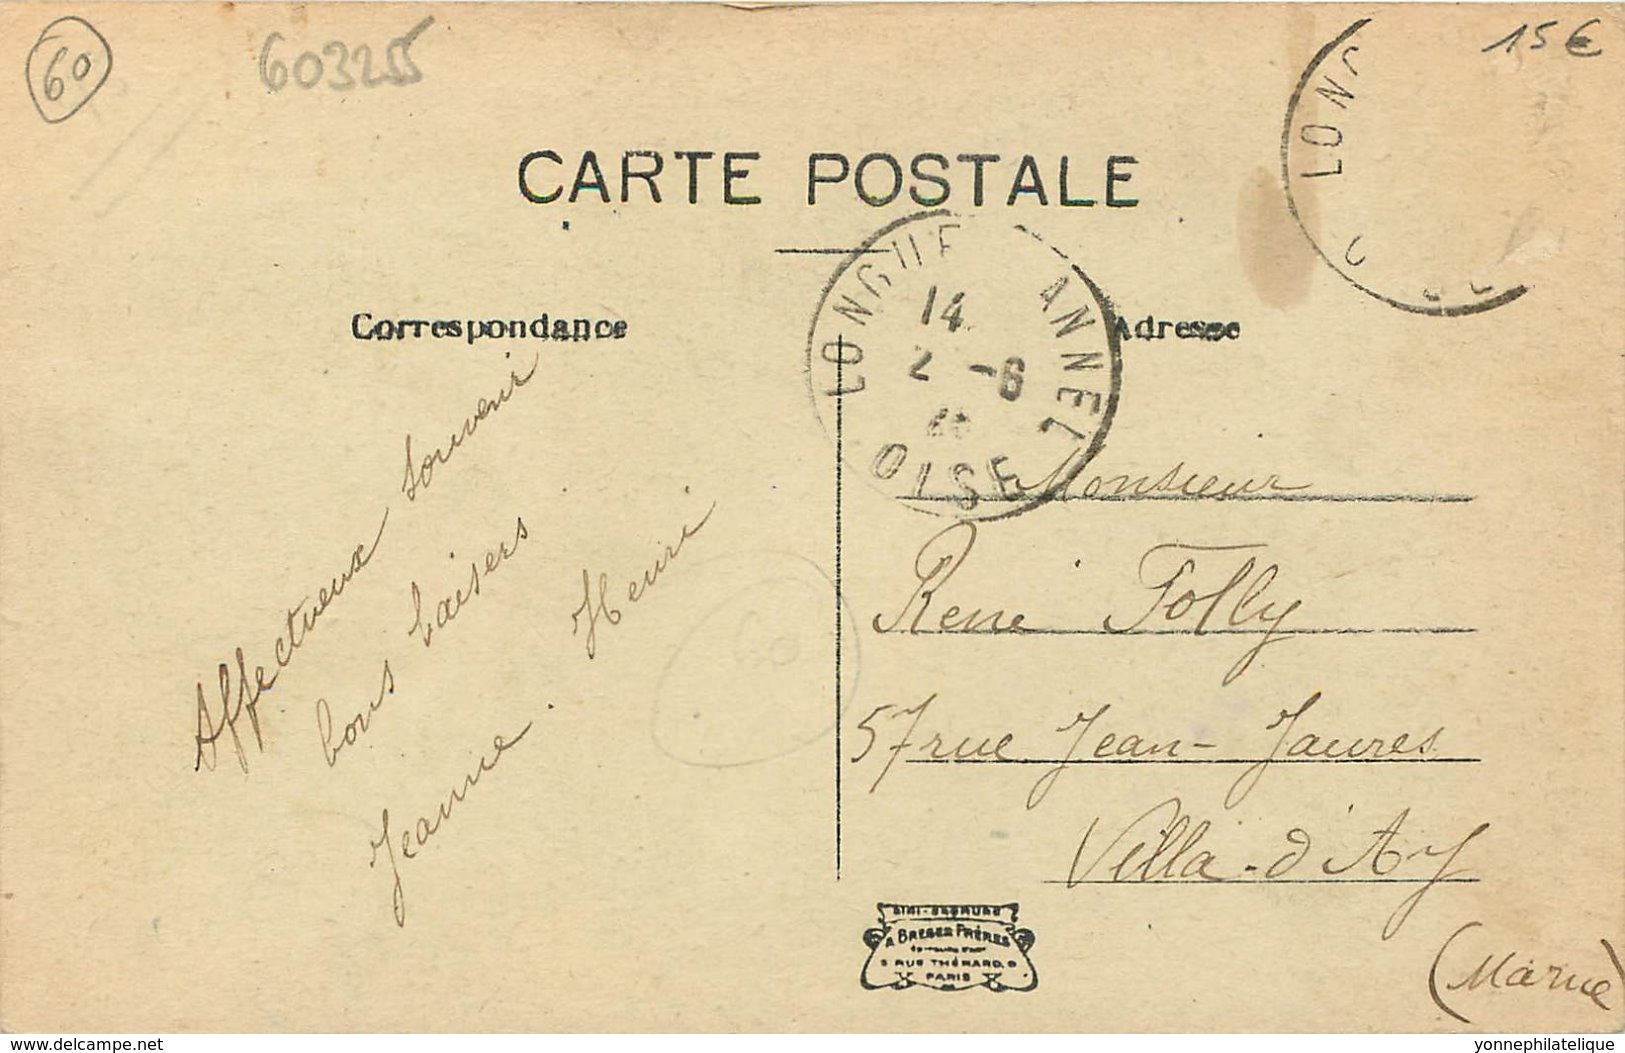 60
603255
15€
CARTE POSTALE
LONG
LONGUE ANNEL
14
2 -6
OISE
Correspondance
Adresse
Affectueux souvenir
bons baisers
Jeanne. Henri
60
Monsieur
René Folly
57 rue Jean-Jaures
Villa-d'Ay
(Marne)
A BREGER FRÈRES
9 RUE THÉNARD. 9
PARIS
Delcampe.com
yonnephilatelique